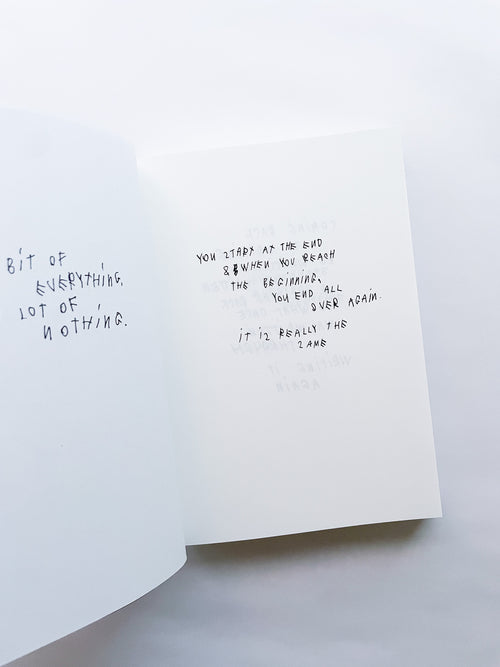 BiT OF
EVERYTHiNG.
LOT OF
NOTHiNG.
YOU START AT THE END
& WHEN YOU REACH
THE BEGiNNiNG,
YOU END ALL
OVER AGAiN.
iT iS REALLY THE
SAME